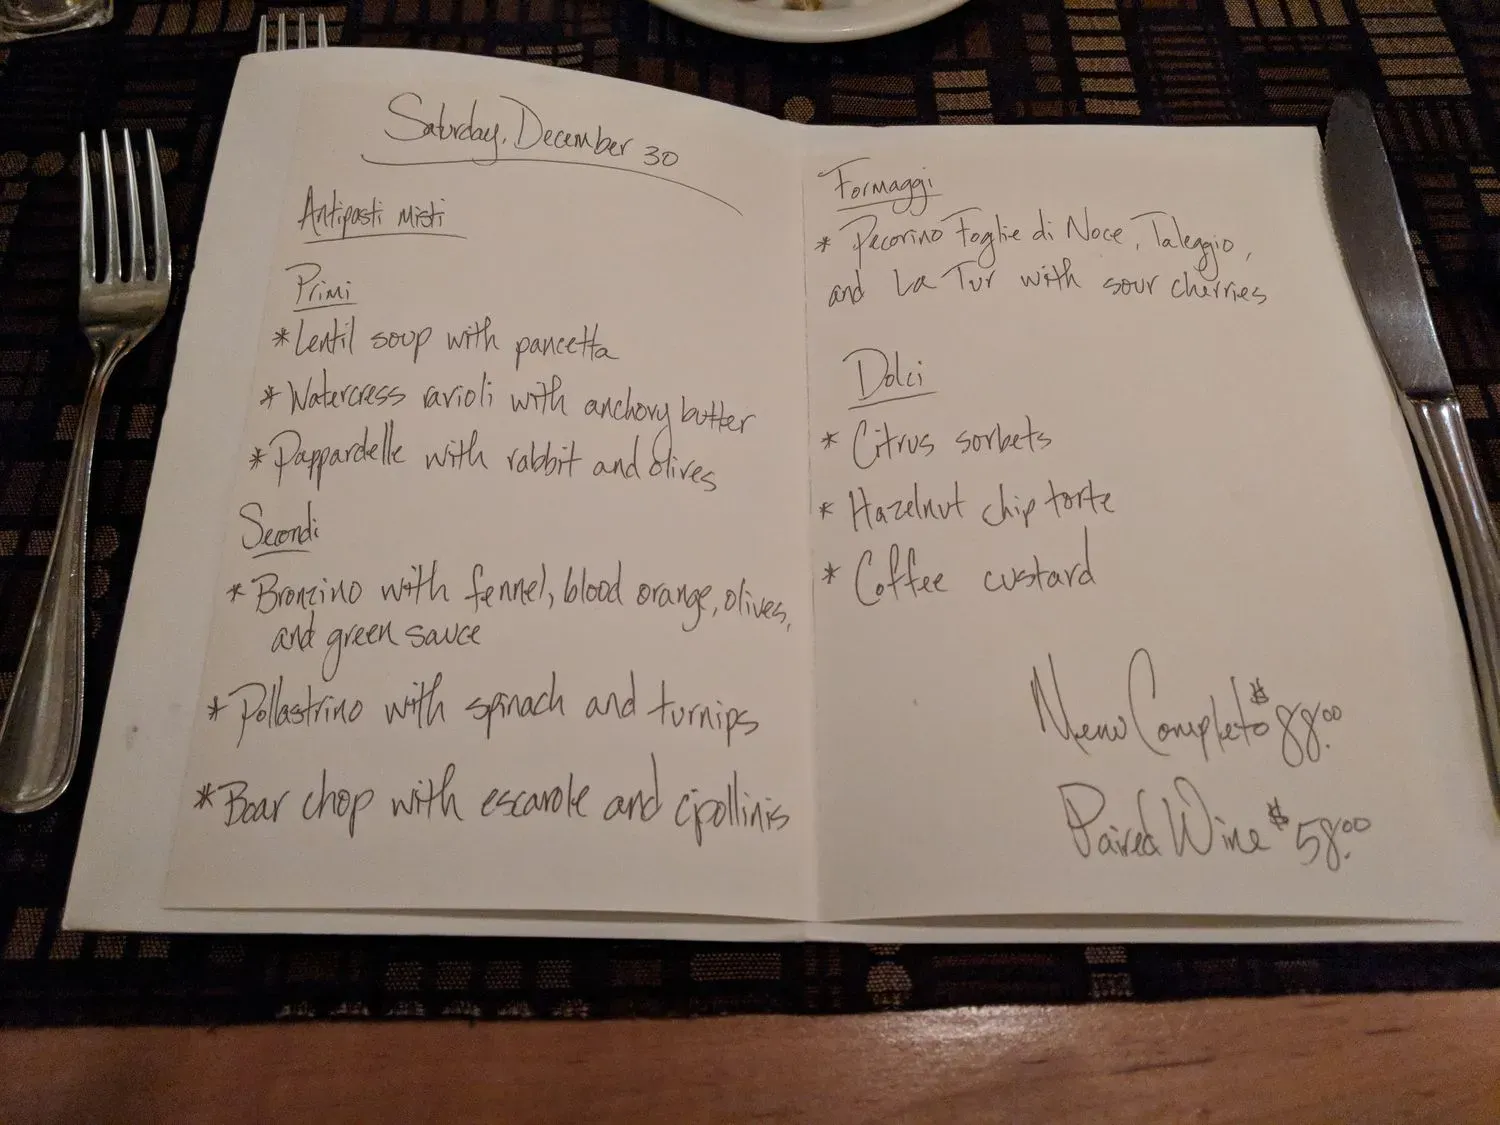 Saturday, December 30
Antipasti misti
Primi
* Lentil soup with pancetta
* Watercress ravioli with anchovy butter
* Pappardelle with rabbit and olives
Secondi
* Bronzino with fennel, blood orange, olives,
and green sauce
* Pollastrino with spinach and turnips
* Boar chop with escarole and cipollinis
Formaggi
* Pecorino Foglie di Noce, Taleggio,
and La Tur with sour cherries
Dolci
* Citrus sorbets
* Hazelnut chip torte
* Coffee custard
Menu Completo $88.00
Paired Wine $58.00